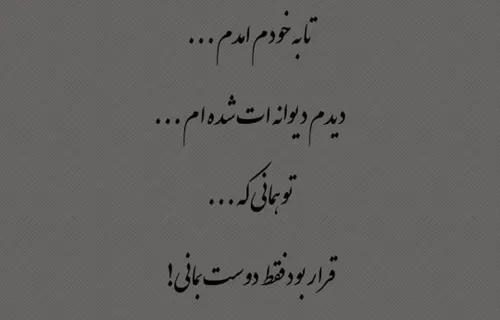 تا به خودم امدم ...
دیدم دیوانه ات شده ام ...
تو همانی که ...
قرار بود فقط دوست بمانی!